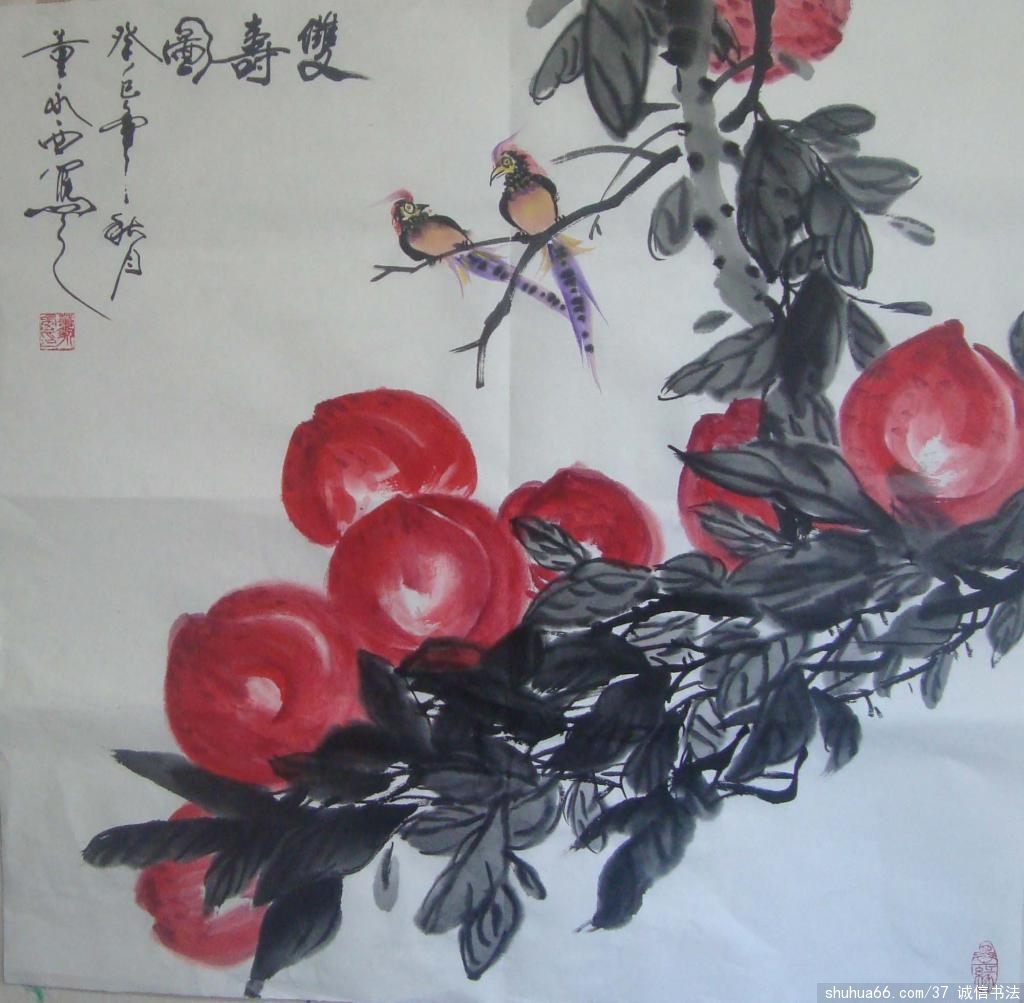 雙壽圖
癸巳年秋月
董永西寫
shuhua66.com/37 诚信书法